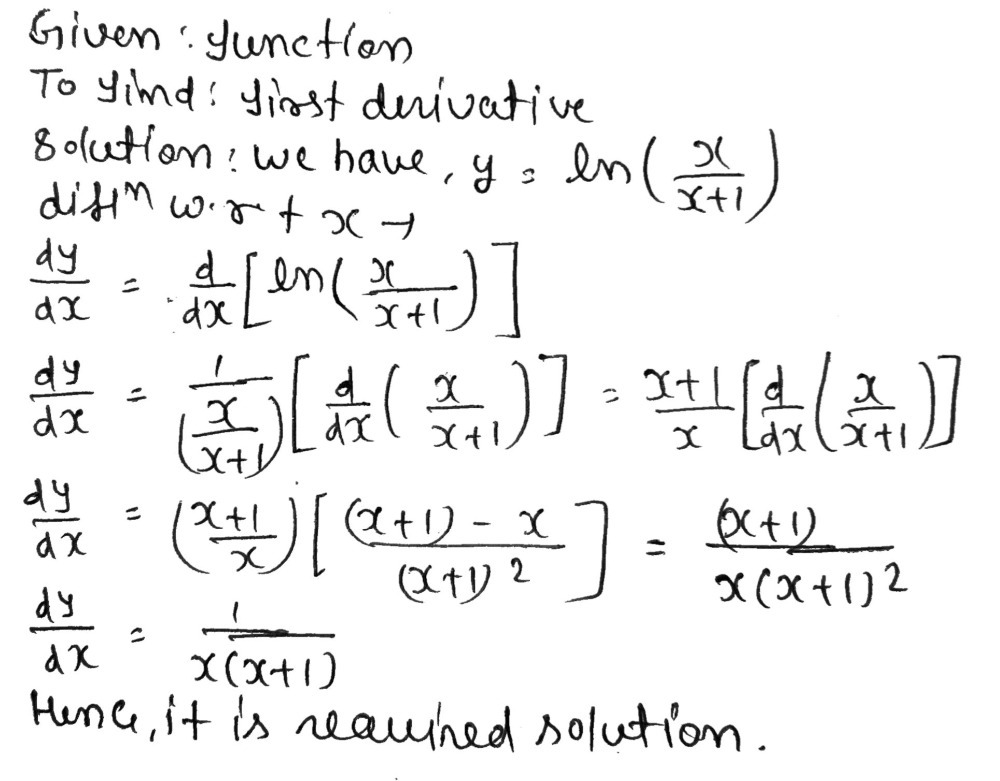 Given : function
To find : first derivative
Solution : we have, y = ln(x/(x+1))
diffn w.r.t x →
dy/dx = d/dx[ln(x/(x+1))]
dy/dx = 1/(x/(x+1))[d/dx(x/(x+1))] = (x+1)/x[d/dx(x/(x+1))]
dy/dx = ((x+1)/x)[((x+1) - x)/(x+1)²] = (x+1)/(x(x+1)²)
dy/dx = 1/(x(x+1))
Hence, it is required solution.